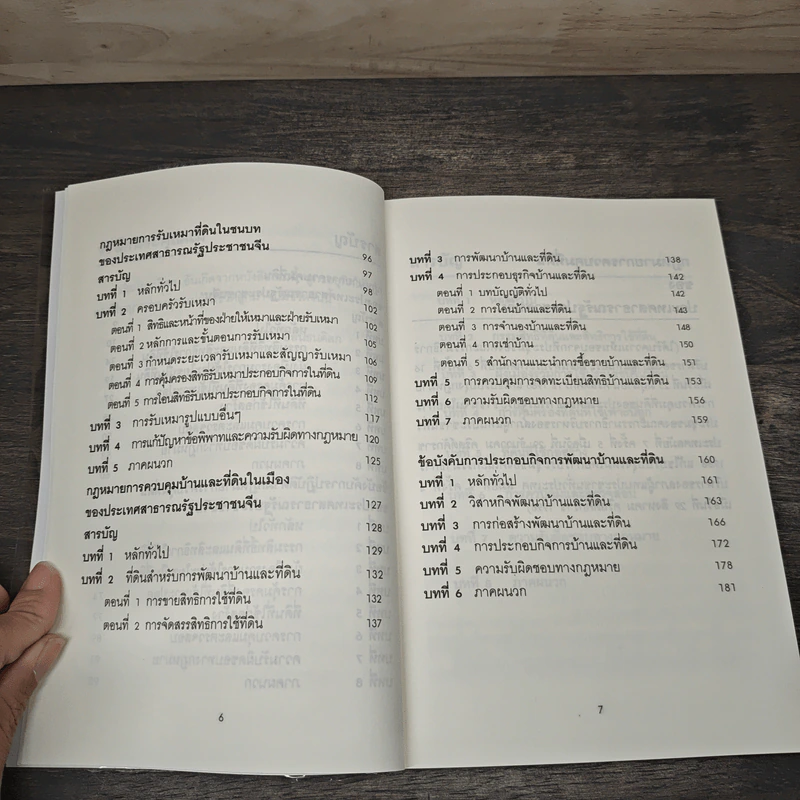 กฎหมายการรับเหมาที่ดินในชนบท
ของประเทศสาธารณรัฐประชาชนจีน 96
สารบัญ 97
บทที่ 1 หลักทั่วไป 98
บทที่ 2 ครอบครัวรับเหมา 102
ตอนที่ 1 สิทธิและหน้าที่ของฝ่ายให้เหมาและฝ่ายรับเหมา 102
ตอนที่ 2 หลักการและขั้นตอนการรับเหมา 105
ตอนที่ 3 กำหนดระยะเวลารับเหมาและสัญญารับเหมา 106
ตอนที่ 4 การคุ้มครองสิทธิรับเหมาประกอบกิจการในที่ดิน 109
ตอนที่ 5 การโอนสิทธิรับเหมาประกอบกิจการในที่ดิน 112
บทที่ 3 การรับเหมารูปแบบอื่นๆ 117
บทที่ 4 การแก้ปัญหาข้อพิพาทและความรับผิดทางกฎหมาย 120
บทที่ 5 ภาคผนวก 125
กฎหมายการควบคุมบ้านและที่ดินในเมือง
ของประเทศสาธารณรัฐประชาชนจีน 127
สารบัญ 128
บทที่ 1 หลักทั่วไป 129
บทที่ 2 ที่ดินสำหรับการพัฒนาบ้านและที่ดิน 132
ตอนที่ 1 การขายสิทธิการใช้ที่ดิน 132
ตอนที่ 2 การจัดสรรสิทธิการใช้ที่ดิน 137
6
บทที่ 3 การพัฒนาบ้านและที่ดิน 138
บทที่ 4 การประกอบธุรกิจบ้านและที่ดิน 142
ตอนที่ 1 บทบัญญัติทั่วไป 142
ตอนที่ 2 การโอนบ้านและที่ดิน 143
ตอนที่ 3 การจำนองบ้านและที่ดิน 148
ตอนที่ 4 การเช่าบ้าน 150
ตอนที่ 5 สำนักงานแนะนำการซื้อขายบ้านและที่ดิน 151
บทที่ 5 การควบคุมการจดทะเบียนสิทธิบ้านและที่ดิน 153
บทที่ 6 ความรับผิดชอบทางกฎหมาย 156
บทที่ 7 ภาคผนวก 159
ข้อบังคับการประกอบกิจการพัฒนาบ้านและที่ดิน 160
บทที่ 1 หลักทั่วไป 161
บทที่ 2 วิสาหกิจพัฒนาบ้านและที่ดิน 163
บทที่ 3 การก่อสร้างพัฒนาบ้านและที่ดิน 166
บทที่ 4 การประกอบกิจการบ้านและที่ดิน 172
บทที่ 5 ความรับผิดชอบทางกฎหมาย 178
บทที่ 6 ภาคผนวก 181
7